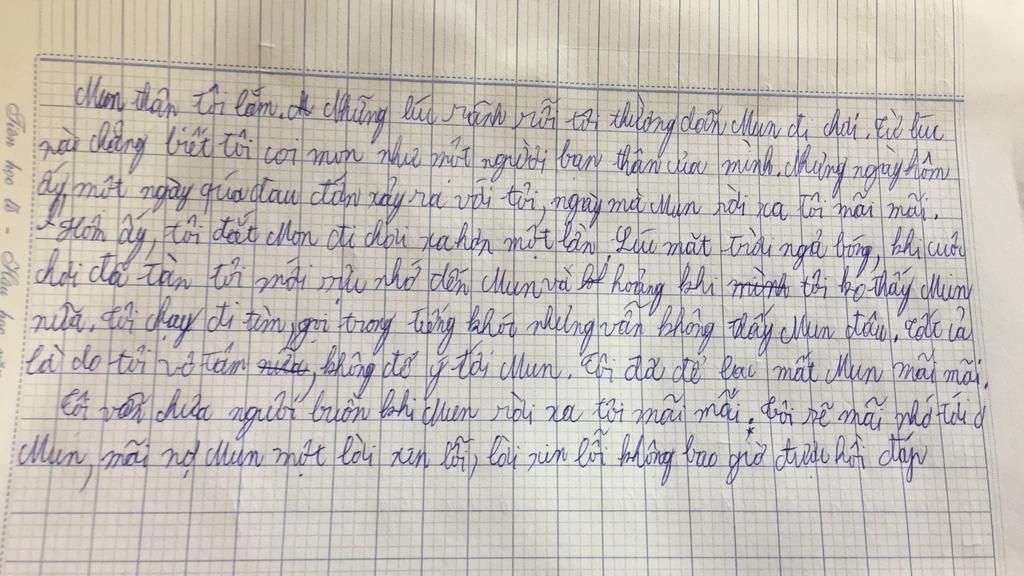 Mun thân tôi lắm. Những lúc rảnh rỗi tôi thường dẫn Mun đi chơi. Từ lúc
nào chẳng biết tôi coi mun như một người bạn thân của mình. Nhưng ngày hôm
ấy, một ngày quá đau đớn xảy ra với tôi, ngày mà Mun rời xa tôi mãi mãi.
Hôm ấy, tôi dắt Mon đi chơi xa hơn một lần. Lúc mặt trời ngả bóng, khi cuộc
chơi đã tàn tôi mới nhớ đến Mun và hoảng khi tôi ko thấy Mun
nữa. Tôi chạy đi tìm, gọi trong tiếng khóc nhưng vẫn không thấy Mun đâu. Tất cả
là do tôi vô tâm, không để ý tới Mun. Tôi đã để lạc mất Mun mãi mãi.
Tôi chưa nguôi buồn khi Mun rời xa tôi mãi mãi. Tôi sẽ mãi nhớ tới
Mun, mãi nợ Mun một lời xin lỗi, lời xin lỗi không bao giờ được hồi đáp
Tiên học lễ - Hậu học